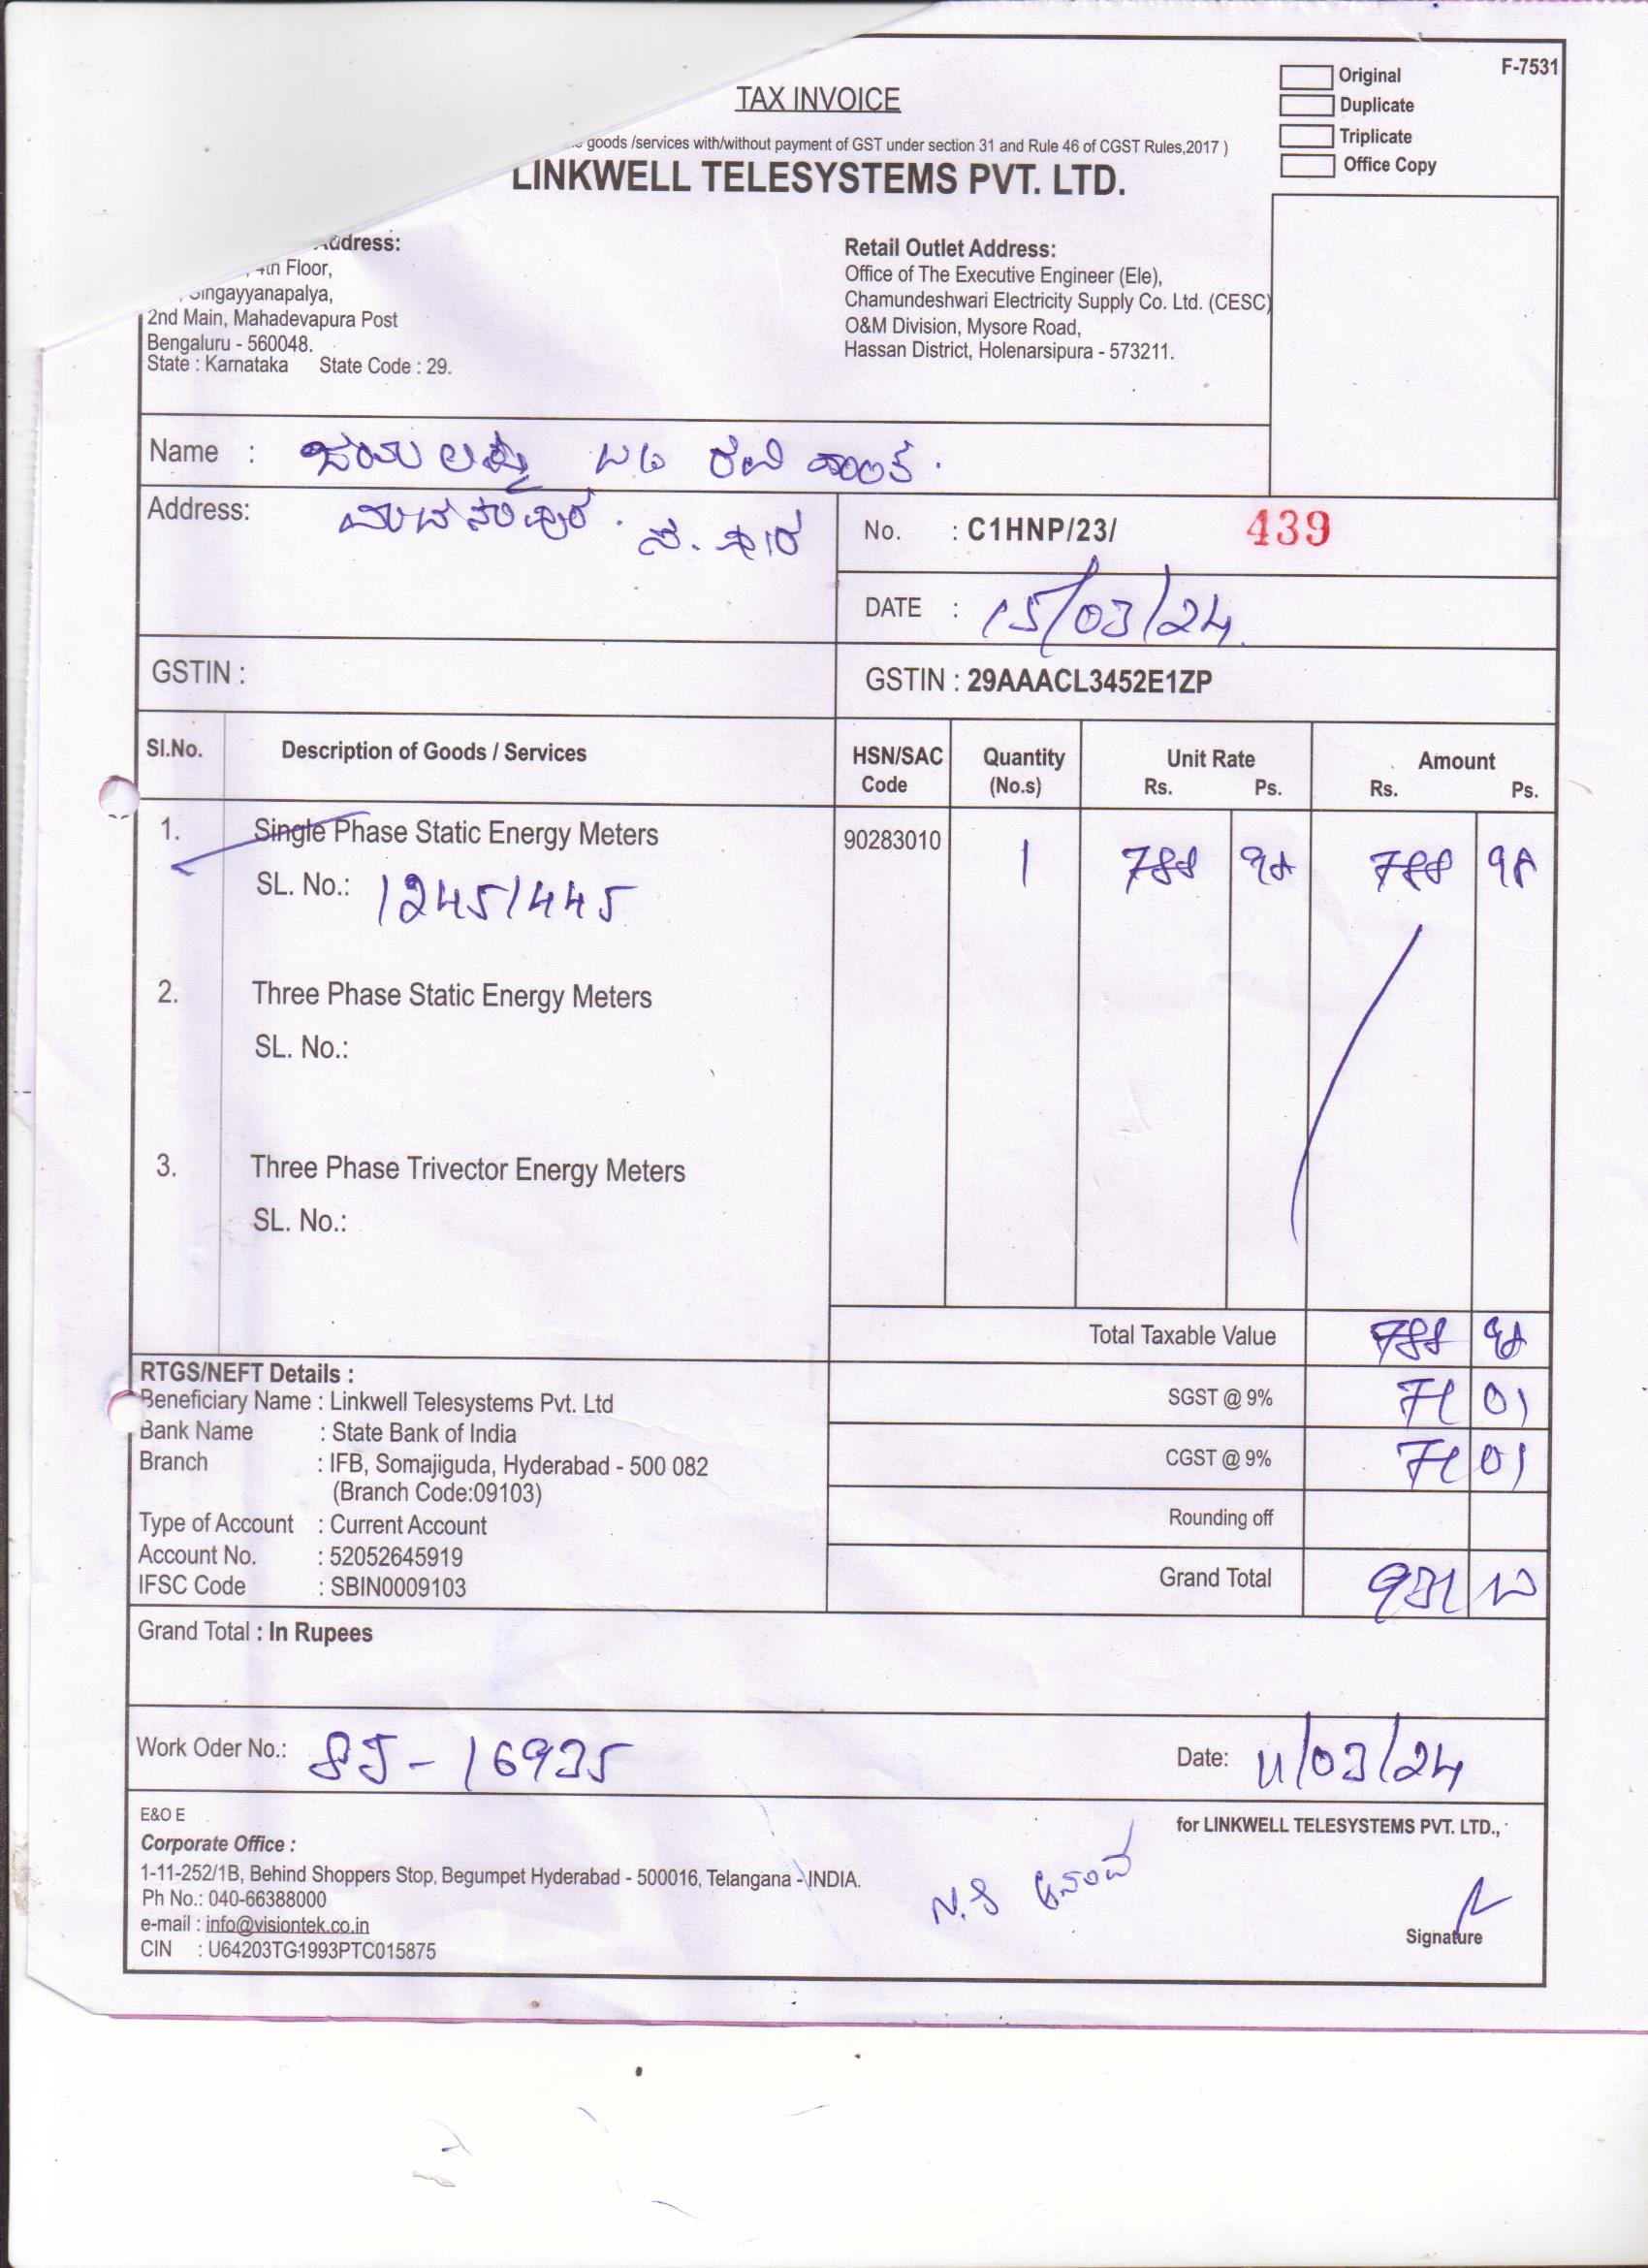 F-7531
Original
Duplicate
Triplicate
Office Copy
TAX INVOICE
goods /services with/without payment of GST under section 31 and Rule 46 of CGST Rules,2017 )
LINKWELL TELESYSTEMS PVT. LTD.
Address:
4th Floor,
Singayyanapalya,
2nd Main, Mahadevapura Post
Bengaluru - 560048.
State : Karnataka State Code : 29.
Retail Outlet Address:
Office of The Executive Engineer (Ele),
Chamundeshwari Electricity Supply Co. Ltd. (CESC)
O&M Division, Mysore Road,
Hassan District, Holenarsipura - 573211.
Name :
Address:
No. : C1HNP/23/ 439
DATE : 15/03/24
GSTIN :
GSTIN : 29AAACL3452E1ZP
Sl.No. Description of Goods / Services HSN/SAC Code Quantity (No.s) Unit Rate Rs. Ps. Amount Rs. Ps.
1. Single Phase Static Energy Meters 90283010 1 788 98 788 98
SL. No.: 12451445
2. Three Phase Static Energy Meters
SL. No.:
3. Three Phase Trivector Energy Meters
SL. No.:
Total Taxable Value 788 98
SGST @ 9% 71 01
CGST @ 9% 71 01
Rounding off
Grand Total 931
RTGS/NEFT Details :
Beneficiary Name : Linkwell Telesystems Pvt. Ltd
Bank Name : State Bank of India
Branch : IFB, Somajiguda, Hyderabad - 500 082
(Branch Code:09103)
Type of Account : Current Account
Account No. : 52052645919
IFSC Code : SBIN0009103
Grand Total : In Rupees
Work Oder No.: 16935 Date: 11/03/24
E&O E
Corporate Office :
1-11-252/1B, Behind Shoppers Stop, Begumpet Hyderabad - 500016, Telangana - INDIA.
Ph No.: 040-66388000
e-mail : info@visiontek.co.in
CIN : U64203TG1993PTC015875
for LINKWELL TELESYSTEMS PVT. LTD.,
Signature